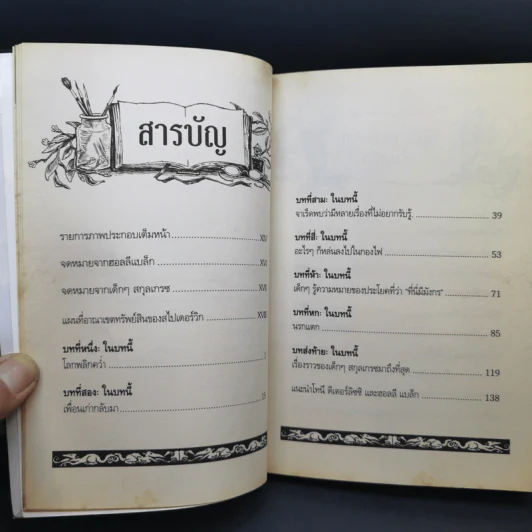 สารบัญ
รายการภาพประกอบเต็มหน้า ........ XIV
จดหมายจากฮอลลีแบล็ก ........ XVI
จดหมายจากเด็กๆ สกุลเกรซ ........ XVII
แผนที่อาณาเขตทรัพย์สินของสไปเดอร์วิก ........ XVIII
บทที่หนึ่ง: ในบทนี้
โลกพลิกคว่ำ ........ 1
บทที่สอง: ในบทนี้
เพื่อนเก่ากลับมา ........ 15
บทที่สาม: ในบทนี้
จาเร็ดพบว่ามีหลายเรื่องที่ไม่อยากรับรู้ ........ 39
บทที่สี่: ในบทนี้
อะไรๆ ก็หล่นลงไปในกองไฟ ........ 53
บทที่ห้า: ในบทนี้
เด็กๆ รู้ความหมายของประโยคที่ว่า "ที่นี่มีมังกร" ........ 71
บทที่หก: ในบทนี้
นรกแตก ........ 85
บทส่งท้าย: ในบทนี้
เรื่องราวของเด็กๆ สกุลเกรซมาถึงที่สุด ........ 119
แนะนำโทนี ดิเตอร์ลิซซี และฮอลลี แบล็ก ........ 138